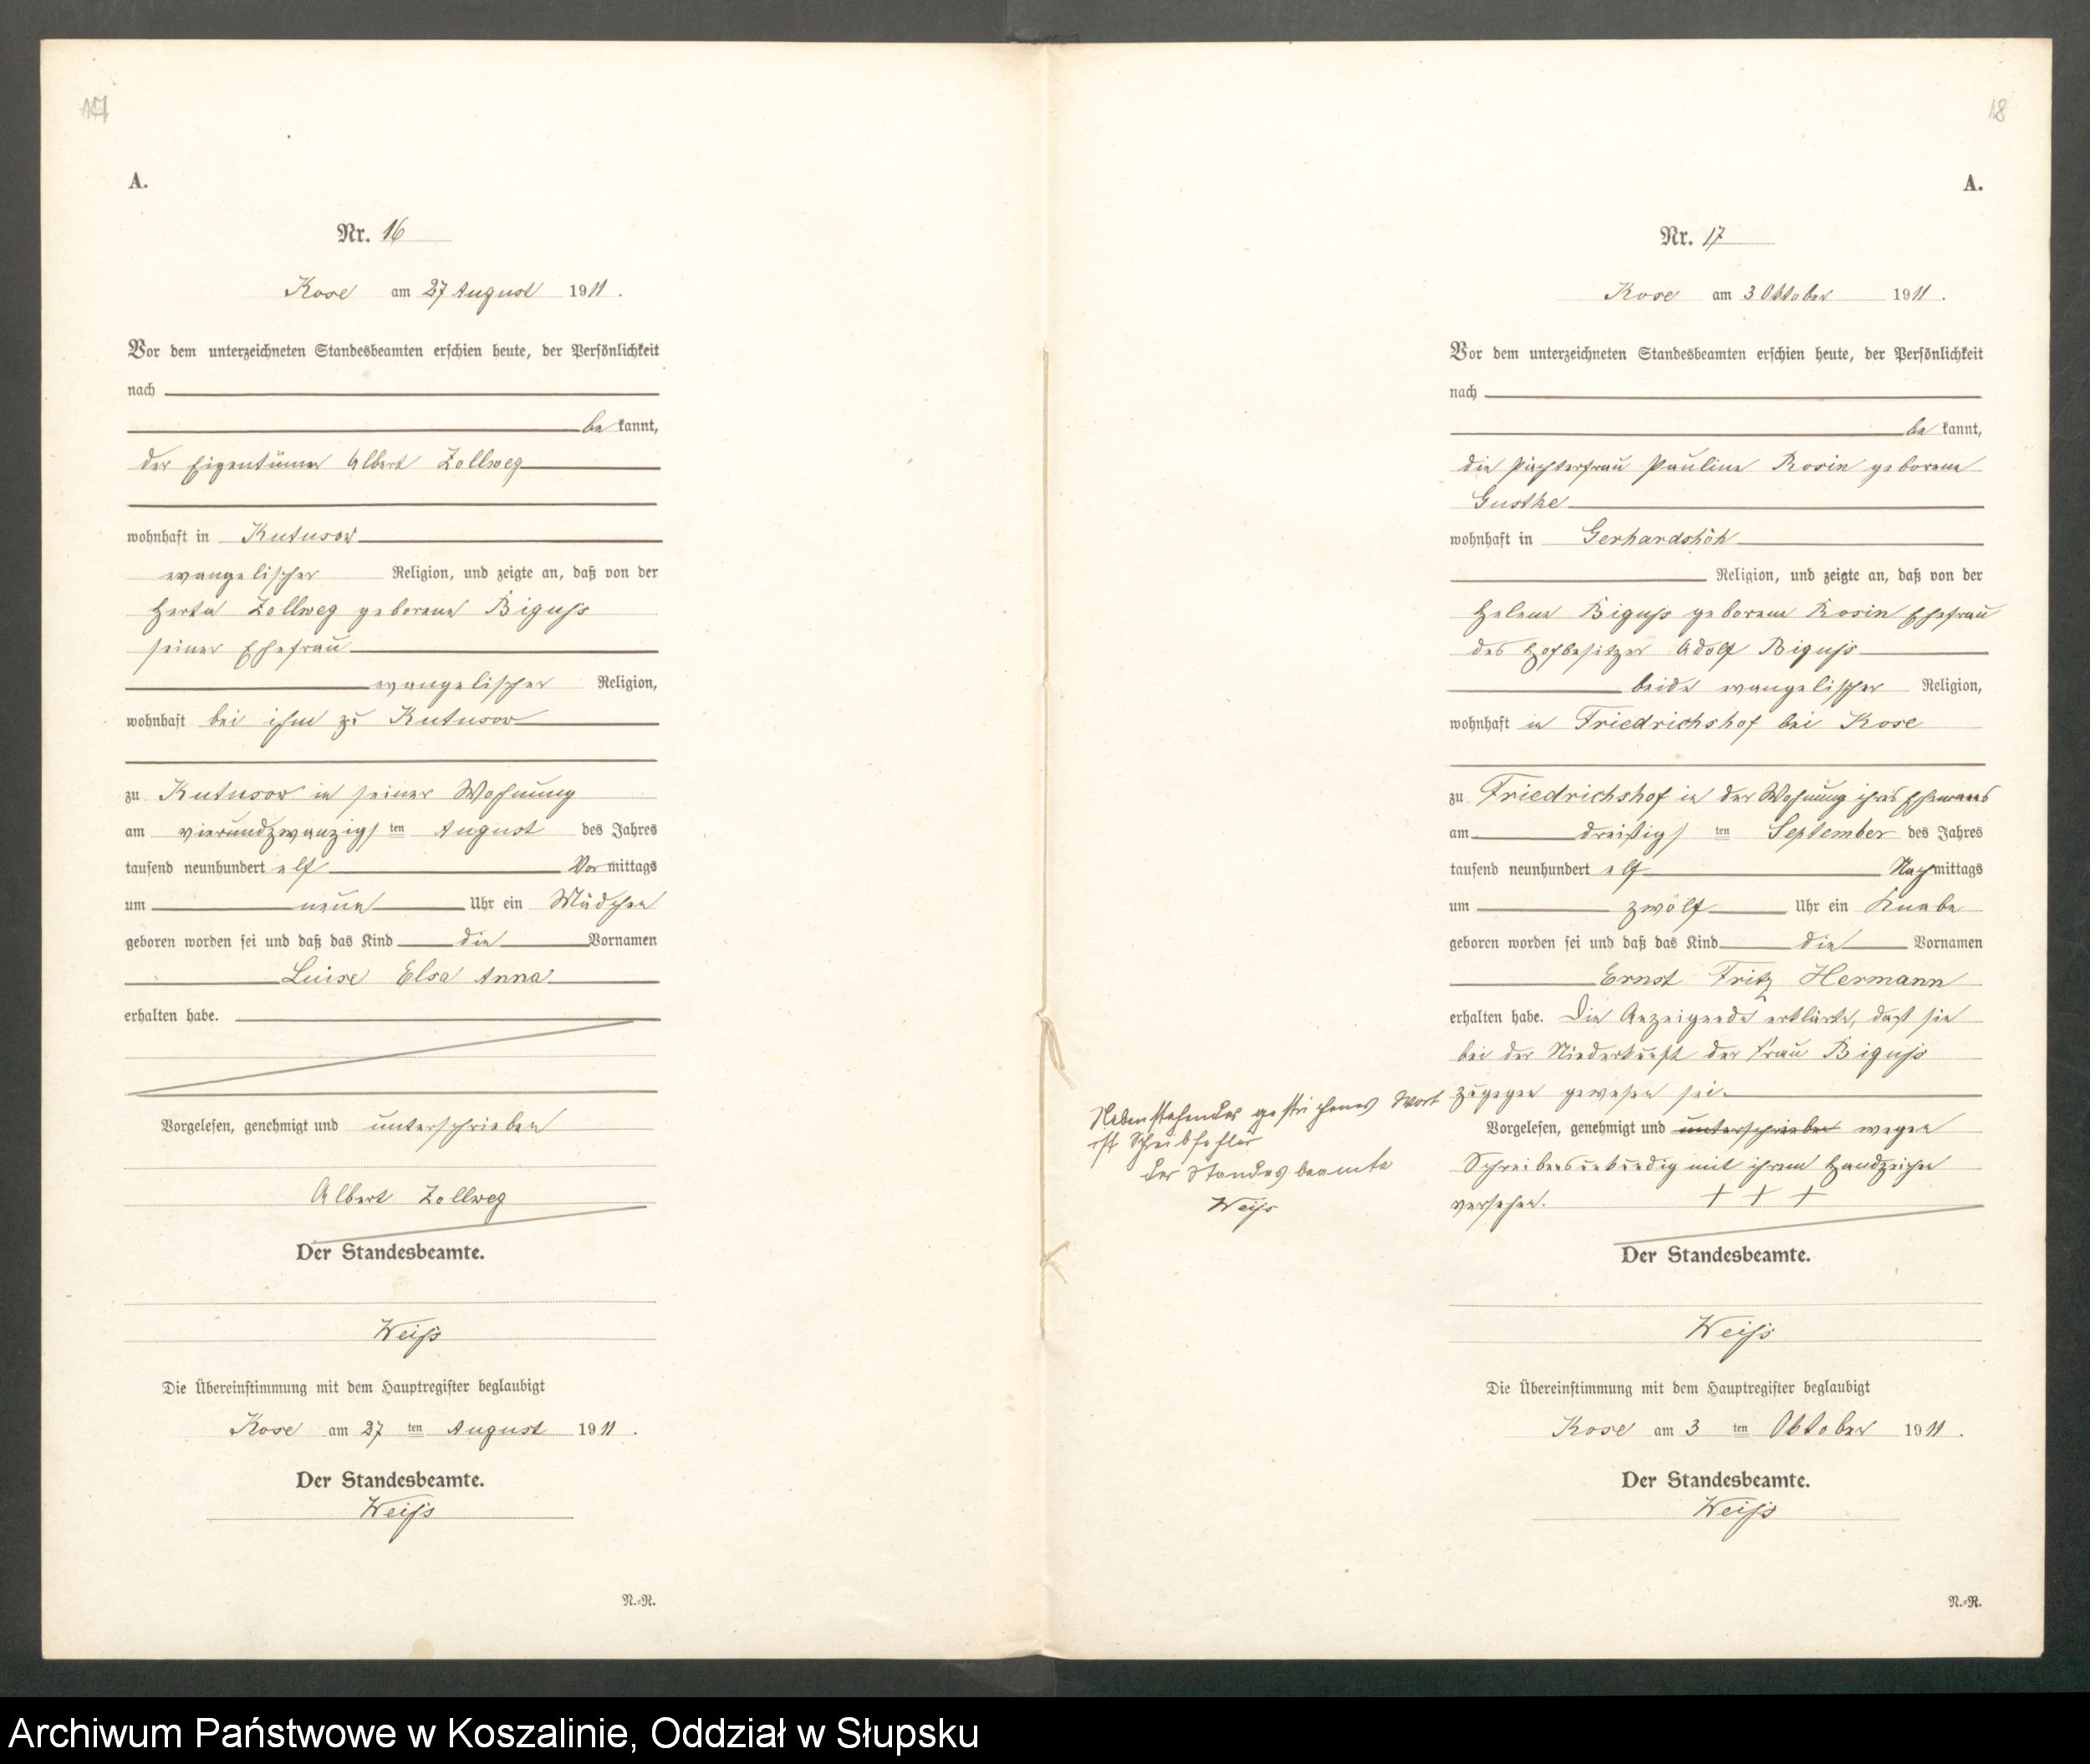 17
A.
Nr. 16
Kose am 27 August 1911.
Vor dem unterzeichneten Standesbeamten erschien heute, der Persönlichkeit
nach
be kannt,
der Eigentümer Albert Zollweg
wohnhaft in Kutusow
evangelischer Religion, und zeigte an, daß von der
Herta Zollweg geborene Biguss
seiner Ehefrau
evangelischer Religion,
wohnhaft bei ihm zu Kutusow
zu Kutusow in seiner Wohnung
am vierundzwanzigsten August des Jahres
tausend neunhundert elf Vormittags
um neun Uhr ein Mädchen
geboren worden sei und daß das Kind die Vornamen
Luise Elsa Anna
erhalten habe.
Vorgelesen, genehmigt und unterschrieben
Albert Zollweg
Der Standesbeamte.
Weiss
Die Übereinstimmung mit dem Hauptregister beglaubigt
Kose am 27 ten August 1911.
Der Standesbeamte.
Weiss
N.-R.
18
A.
Nr. 17
Kose am 3 Oktober 1911.
Vor dem unterzeichneten Standesbeamten erschien heute, der Persönlichkeit
nach
be kannt,
die Pächterfrau Pauline Rosin geborene
Gustke
wohnhaft in Gerhardshöh
Religion, und zeigte an, daß von der
Helene Biguss geborene Rosin Ehefrau
des Hofbesitzer Adolf Biguss
beide evangelischer Religion,
wohnhaft in Friedrichshof bei Kose
zu Friedrichshof in der Wohnung ihres Ehemanns
am dreißigsten September des Jahres
tausend neunhundert elf Nachmittags
um zwölf Uhr ein Knabe
geboren worden sei und daß das Kind die Vornamen
Ernst Fritz Hermann
erhalten habe. Die Anzeigende erklärte, daß sie
bei der Niederkunft der Frau Biguss
zugegen gewesen sei.
Vorgelesen, genehmigt und unterschrieben wegen
Schreibensunkundig mit ihrem Handzeichen
versehen. + + +
Nebenstehendes gestrichenes Wort
ist Schreibfehler
Der Standesbeamte
Weiss
Der Standesbeamte.
Weiss
Die Übereinstimmung mit dem Hauptregister beglaubigt
Kose am 3 ten Oktober 1911.
Der Standesbeamte.
Weiss
N.-R.
Archiwum Państwowe w Koszalinie, Oddział w Słupsku